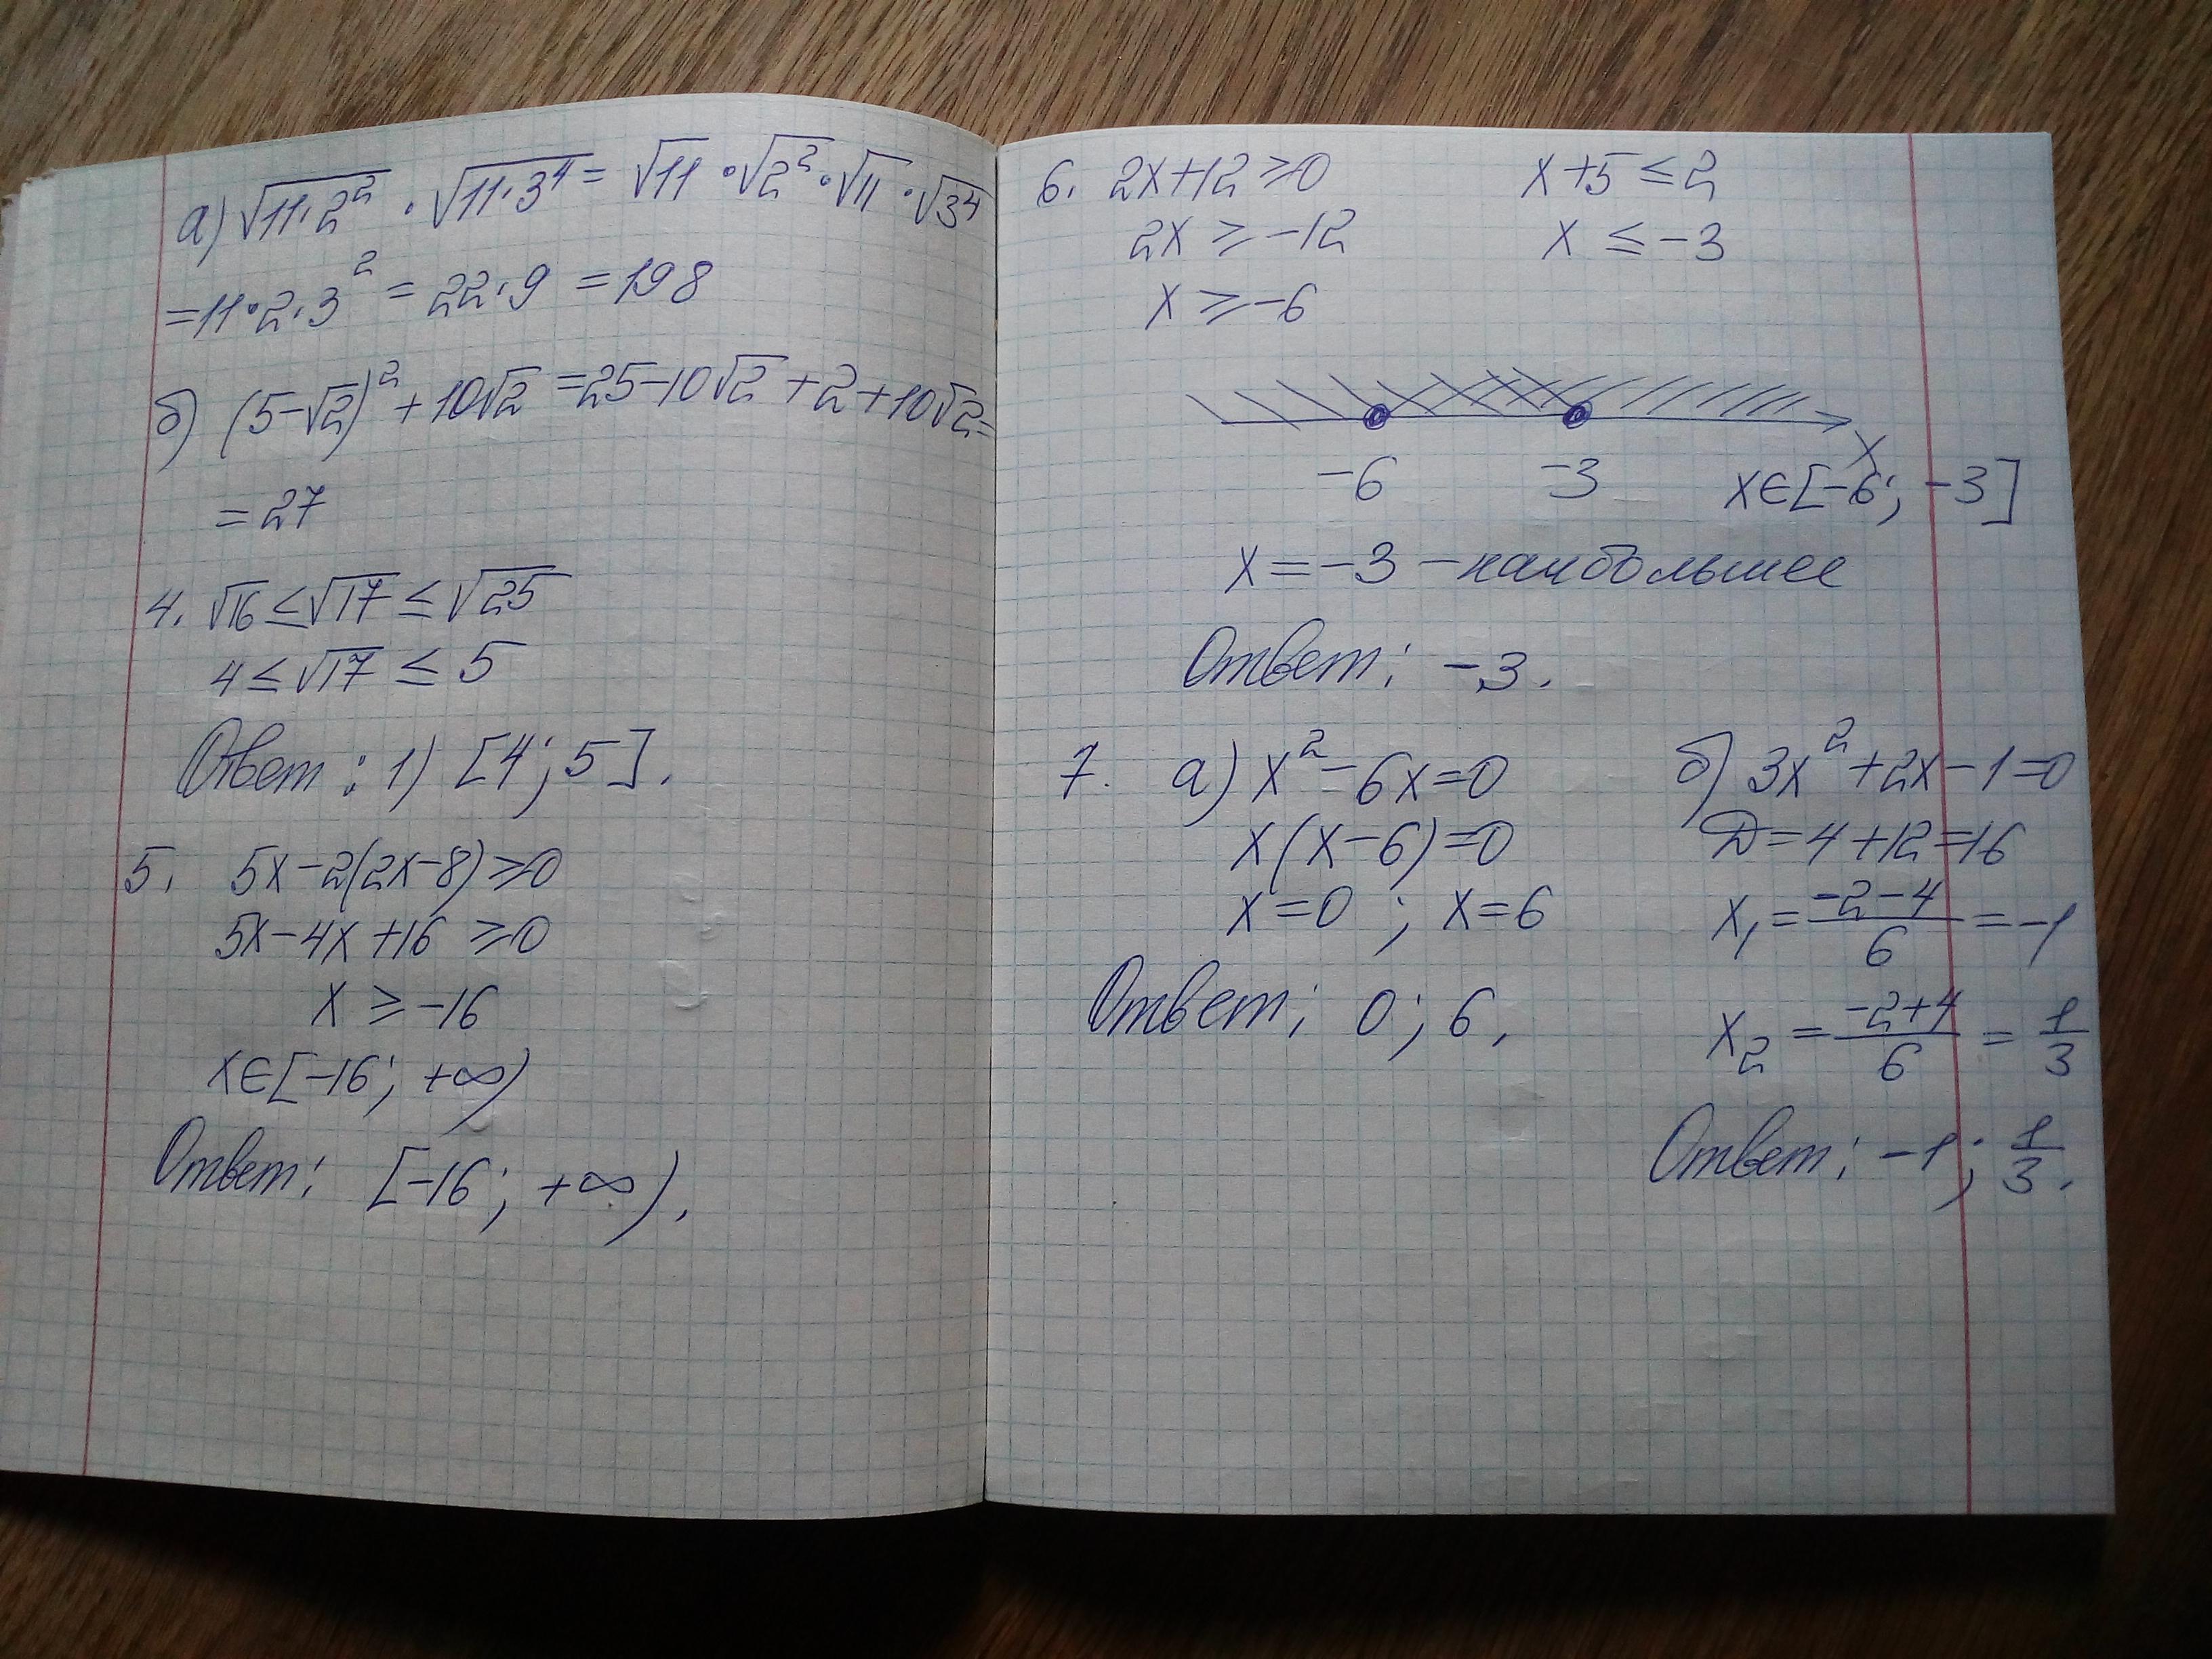 а) √11·2² · √11·3⁴ = √11 · √2² · √11 · √3⁴
= 11·2·3² = 22·9 = 198
б) (5-√2)² + 10√2 = 25-10√2 + 2 + 10√2 =
= 27
4. √16 ≤ √17 ≤ √25
4 ≤ √17 ≤ 5
Ответ: 1) [4; 5].
5. 5x-2(2x-8) ⩾ 0
5x-4x+16 ⩾ 0
x ⩾ -16
x∈[-16; +∞)
Ответ: [-16; +∞).
6. 2x+12 ⩾ 0 x+5 ≤ 2
2x ⩾ -12 x ≤ -3
x ⩾ -6
x
-6 -3 x∈[-6; -3]
x = -3 - наибольшее
Ответ: -3.
7. а) x²-6x=0
x(x-6)=0
x=0 ; x=6
Ответ: 0; 6.
б) 3x²+2x-1=0
Д=4+12=16
x₁ = (-2-4)/6 = -1
x₂ = (-2+4)/6 = 1/3
Ответ: -1; 1/3.